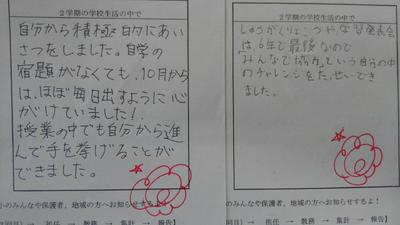 2学期の学校生活の中で
自分から積極的にあい
さつをしました。自学の
宿題がなくても、10月から
は、ほぼ毎日出すように心
がけていました!
授業の中でも自分から進
んで手を挙げることが
できました。
小のみんなや保護者、地域の方へお知らせするよ!
回目) → 担任 → 教務 → 集計 → 報告】
2学期の学校生活の中で
しゅうがくりょこうや、学習発表会
は、6年で最後なので
「みんなで協力」という自分の中
のチャレンジをたっせいでき
ました。
のみんなや保護者、地域の方へお知らせするよ!
回目) → 担任 → 教務 → 集計 → 報告】